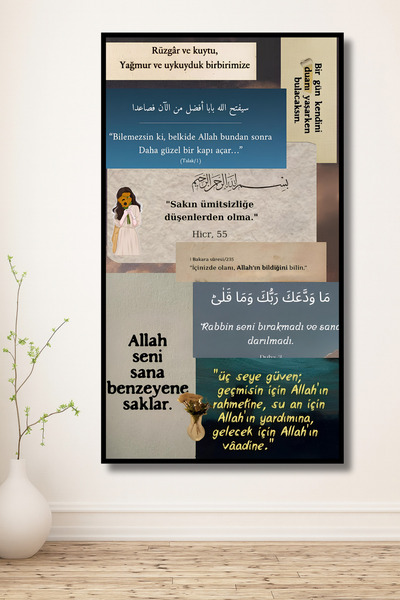 Rüzgâr ve kuytu,
Yağmur ve uykuyduk birbirimize
Bir gün kendini
duanı yaşarken
bulacaksın.
سيفتح الله بابا أفضل من الآن فصاعدا
"Bilemezsin ki, belkide Allah bundan sonra
Daha güzel bir kapı açar..."
(Talak/1)
بسم الله الرحمن الرحيم
"Sakın ümitsizliğe
düşenlerden olma."
Hicr, 55
Bakara sûresi/235
"İçinizde olanı, Allah'ın bildiğini bilin."
مَا وَدَّعَكَ رَبُّكَ وَمَا قَلٰىۜ
"Rabbin seni bırakmadı ve sana
darılmadı.
Duha 3
Allah
seni
sana
benzeyene
saklar.
"üç seye güven;
geçmisin için Allah'ın
rahmetine, su an için
Allah'ın yardımına,
gelecek için Allah'ın
vâadine."